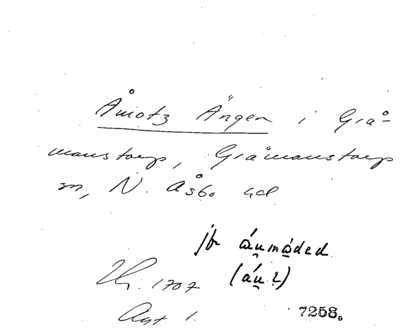 Åmotz Ängen i Grå-
manstorp, Gråmanstorps
sn, N. Åsbo hd
jfr áu̯mǻded
(áu̯?)
Lm. 1707
Akt 1.
7258.